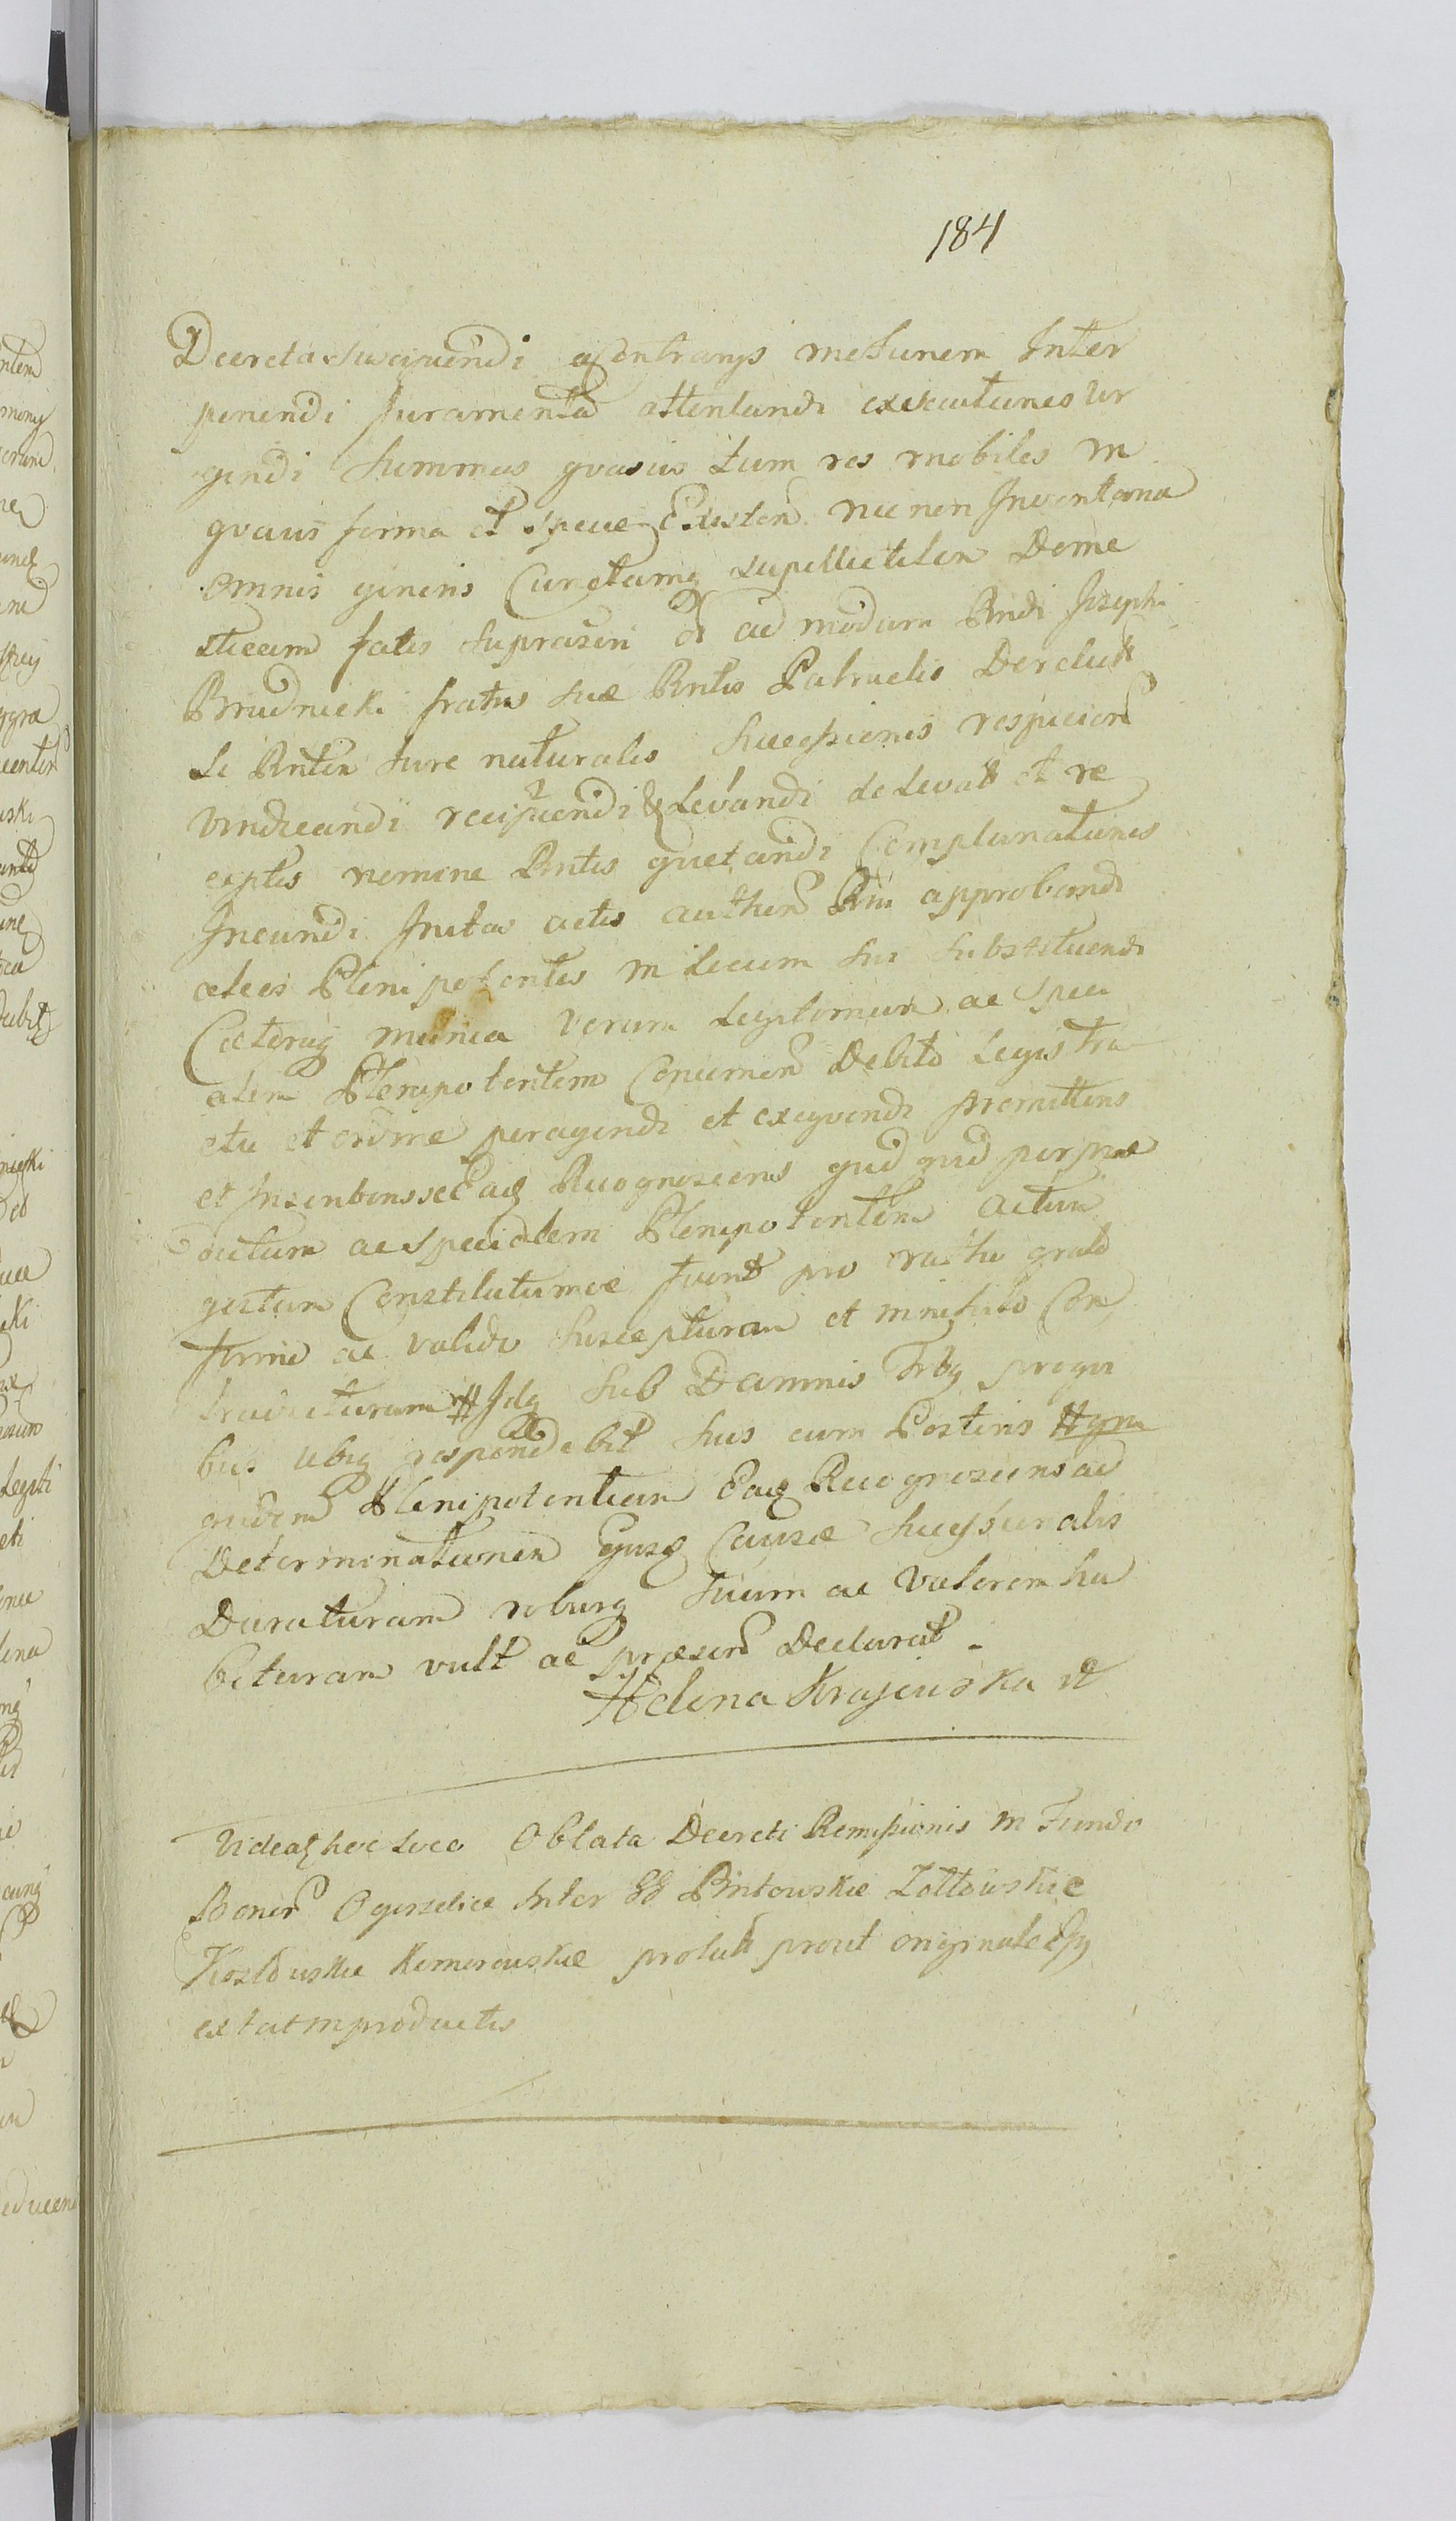 184
Decreta suscipiendi a Contrarys motionem Inter
ponendi Juramenta attentandi executiones Ur
gendi Summas quasvis tum res mobiles in
quavis forma et specie Existen nec non Inventaria
omnis generis Cunctamq supellectilem Dome
sticam fatis suprascri ad modum Rndi Josephi
Brudnicki fratris sui Rntis Patruelis Derelict
se Rntem Jure naturalis Successionis respicien
vindicandi recipiendi & Levandi de Levat et re
ceptis nomine Rntis quietandi Complanationes
Ineundi Initas actis authen approbandi
alios Plenipotentes in Locum sui substituendi
Caeteraq munia verum Legitimum ac speci
alem Plenipotentem Concernen Debito Legis tra
ctu et ordine peragendi et exequendi promittens
et Inscribens se Eaq Recognoscens quid quid per prae
dictum ac specialem Plenipotentem actum
gestum Constitutumve fuerit pro ratho grato
firmo ac valido suscepturam et in nihilo Con
travicturam # Idq sub Damnis Trbq proqui
bus ubiq respondebit suis cum Posteris
quidem Plenipotentiam Eaq Recognoscens ad
Determinationem Ejusq Causae Successionalis
Duraturam roburq suum ac Valorem ha
bituram vult ac praesen Declarat -
Helena Krajewska
Videatq hoc Loco Oblata Decreti Remissionis in Fundo
Bonor Ogorzelice Inter GG Pintowskie Zołtowskie
Kozłowskie Komorowskie prolati prout originale
extat in productis